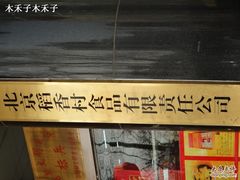 木禾子木禾子
北京稻香村食品有限责任公司